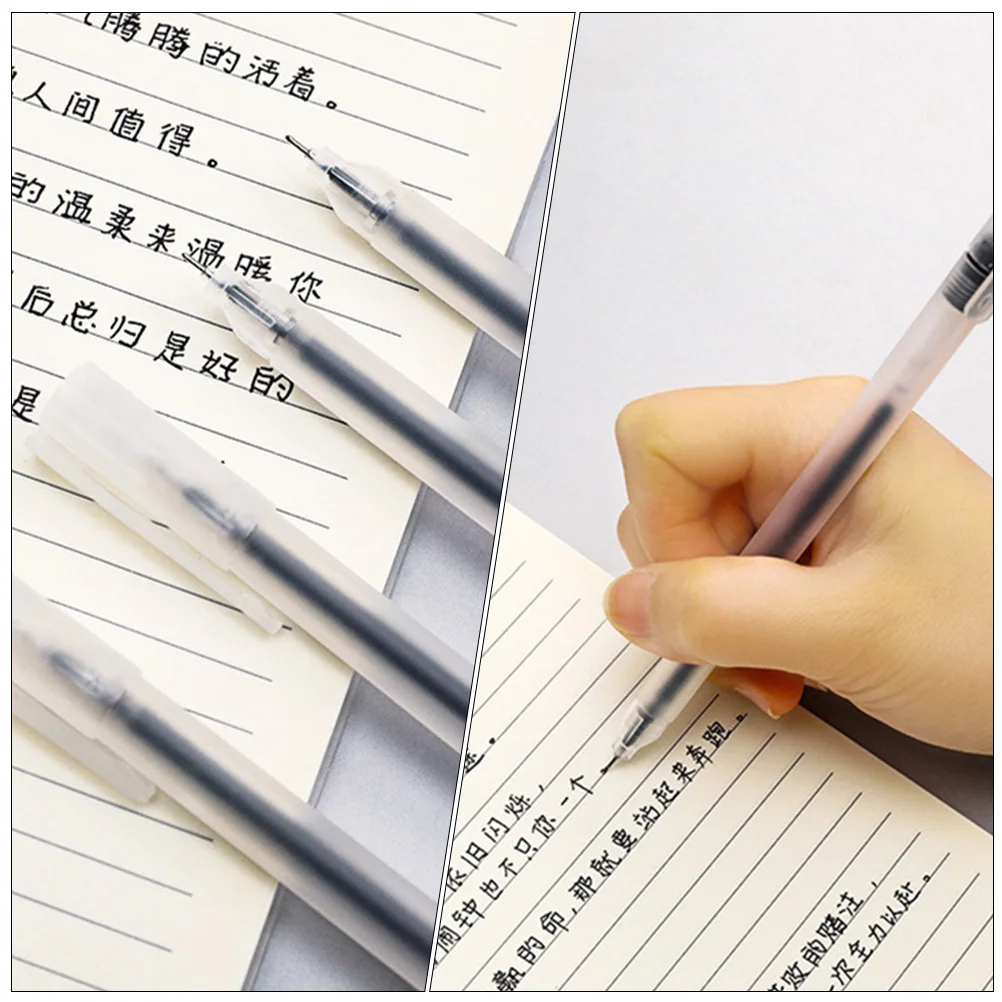 腾腾的活着。
人间值得。
的温柔来温暖你
后总归是好的
是
依旧闪烁，
闹钟也不只你一个
赢的命，那就要站起来奔跑。
失败的赌注，
次全力以赴。